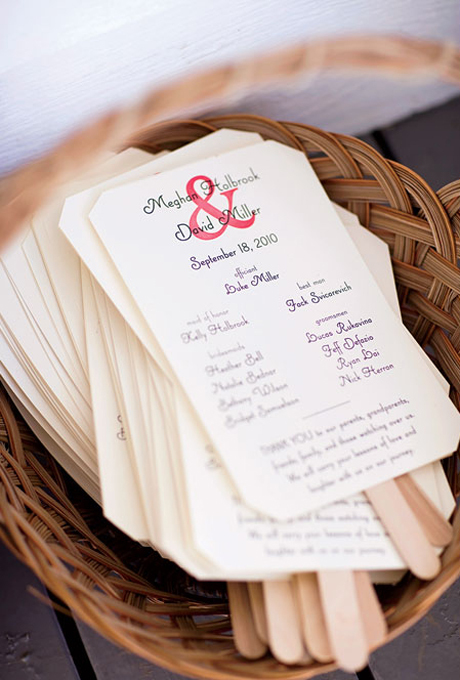 Meghan Holbrook
&
David Miller
September 18, 2010
officiant
Luke Miller
maid of honor
Kelly Holbrook
bridesmaids
Heather Bell
Natalie Bednar
Bethany Wilson
Bridget Samuelson
best man
Jack Svicarevich
groomsmen
Lucas Rukavina
Jeff Defazio
Ryan Loi
Nick Herron
THANK YOU to our parents, grandparents,
friends, family, and those watching over us.
We will carry your lessons of love and
laughter with us on our journey.
and those watching
We will carry your lessons of
laughter with us on our